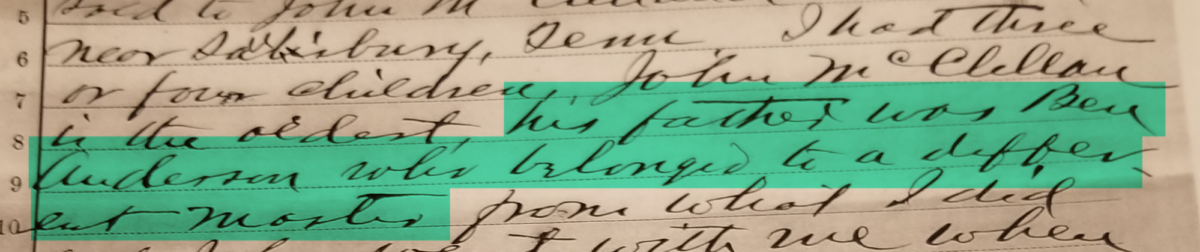 5 sold to John M
6 near Salisbury, Tenn. I had three
7 or four children, John McClellan
8 is the oldest, his father was Ben
9 Anderson who belonged to a differ-
10 ent master from what I did
with me when